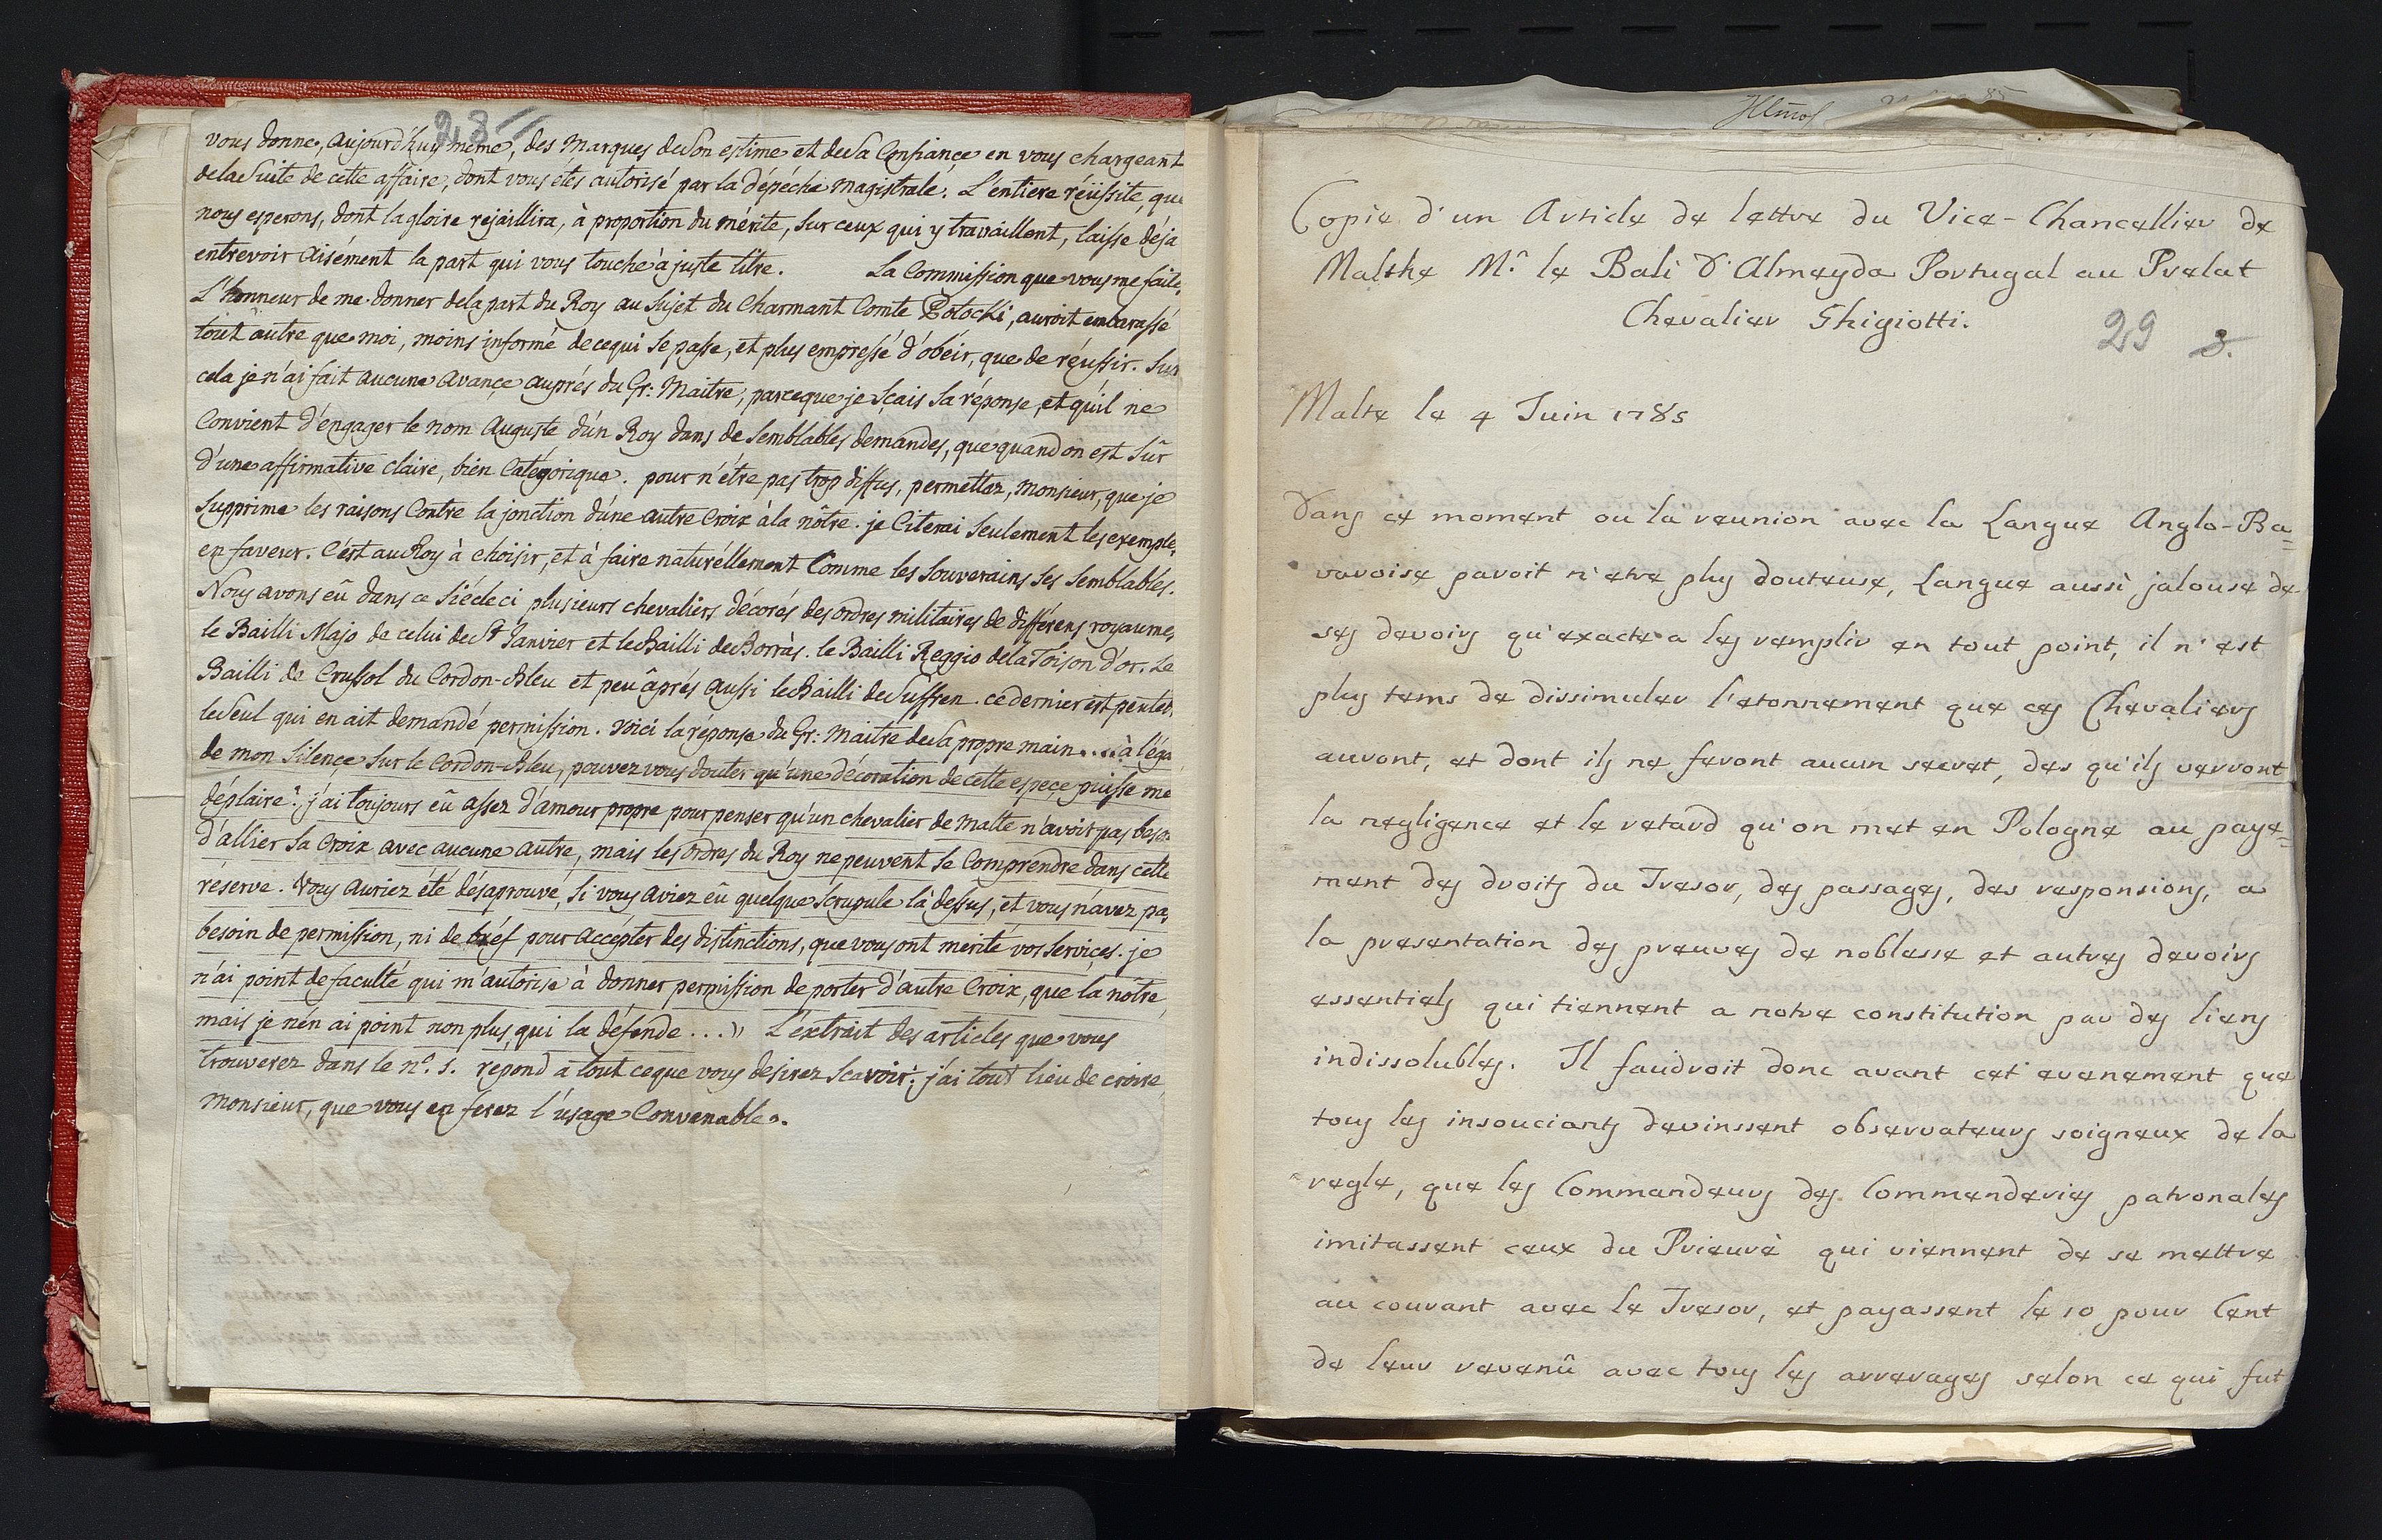 28
vous donne, aujourd'huy même, des Marques de Son estime et de Sa Confiançe en vous chargeant
de la Suite de cette affaire, dont vous étés autorisé par la dépéche magistrale. L'entiere réüssite, que
nous esperons, dont la gloire rejaillira, à proportion du mérite, sur ceux qui y travaillent, laisse déja
entrevoir aisément la part qui vous touche à juste titre. La Commission que vous me faite,
L'honneur de me donner de la part du Roy au Sujet du Charmant Comte Potocki, auroit embarassé
tout autre que moi, moins informé de ce qui Se passe, et plus empressé d'obéir, que de réussir. Sur
cela je n'ai fait aucune avançe auprés du Gr: Maitre, parceque je Sçais Sa réponse, et qu'il ne
Convient d'engager le nom Auguste d'un Roy dans de Semblables demandes, que quand on est Sûr
d'une affirmative claire, bien Catégorique. pour n'étre pas trop diffus, permettez, Monsieur, que je
Supprime les raisons Contre la jonction d'une autre Croix à la nôtre. je Citerai Seulement les exemple,
en faveur. C'est au Roy à choisir, et à faire naturéllement Comme les Souverains Ses Semblables.
Nous avons eû dans ce Siécle ci plusieurs chevaliers décorés des ordres militaires de différens royaumes,
le Bailli Majo de celui de St Janvier et le Bailli de Borràs. le Bailli Reggio de la Toison d'or. Le
Bailli de Crussol du Cordon-Bleu et peu âprés aussi le Bailli de Suffren. ce dernier est peutet,
le Seul qui en ait demandé permission. voici la réponse du Gr: Maitre de Sa propre main.... à l'éga
de mon Silençe Sur le Cordon-Bleu, pouvez vous douter qu'une décoration de cette espeçe puisse me
déplaire? j'ai toujours eû assez d'amour propre pour penser qu'un chevalier de Malte n'avoit pas beso
d'allier Sa Croix avec aucune autre, mais les ordres du Roy ne peuvent Se Comprendre dans cette
réserve. Vous auriez été désaprouvé, Si vous aviez eû quelque Scrupule là dessus, et vous n'avez pa,
besoin de permission, ni de bréf pour accépter des distinctions, que vous ont merité vos Services. je
n'ai point de faculté qui m'autorise à donner permission de porter d'autre Croix, que la nôtre,
mais je n'en ai point non plus, qui la défende...)) L'extrait des articles que vous
trouverez dans le n.º 1. repond à tout ce que vous desirez Scavoir: j'ai tout lieu de croire,
Monsieur, que vous en ferez l'usage Convenable.
Copie d'un Article de lettre du Vice-Chancellier de
Malthe M.r le Bali d'Almeyda Portugal au Prelat
Chevalier Ghigiotti.
29 8.
Malte le 4 Juin 1785
Dans ce moment ou la reunion avec la Langue Anglo-Ba=
varoise paroit n'etre plus douteuse, Langue aussi jalouse de
ses devoirs qu'exacte a les remplir en tout point, il n'est
plus tems de dissimuler l'etonnement que ces Chevaliers
auront, et dont ils ne feront aucun secret, des qu'ils verront
la negligence et le retard qu'on met en Pologne au paye=
ment des droits du Tresor, des passages, des responsions, a
la presentation des preuves de noblesse et autres devoirs
essentiels qui tiennent a notre constitution par des liens
indissolubles. Il faudroit donc avant cet evenement que
tous les insouciants devinssent observateurs soigneux de la
regle, que les Commandeurs des Commenderies patronales
imitassent ceux du Prieuré qui viennent de se mettre
au courant avec le Tresor, et payassent le 10 pour Cent
de leur revenû avec tous les arrerages selon ce qui fut